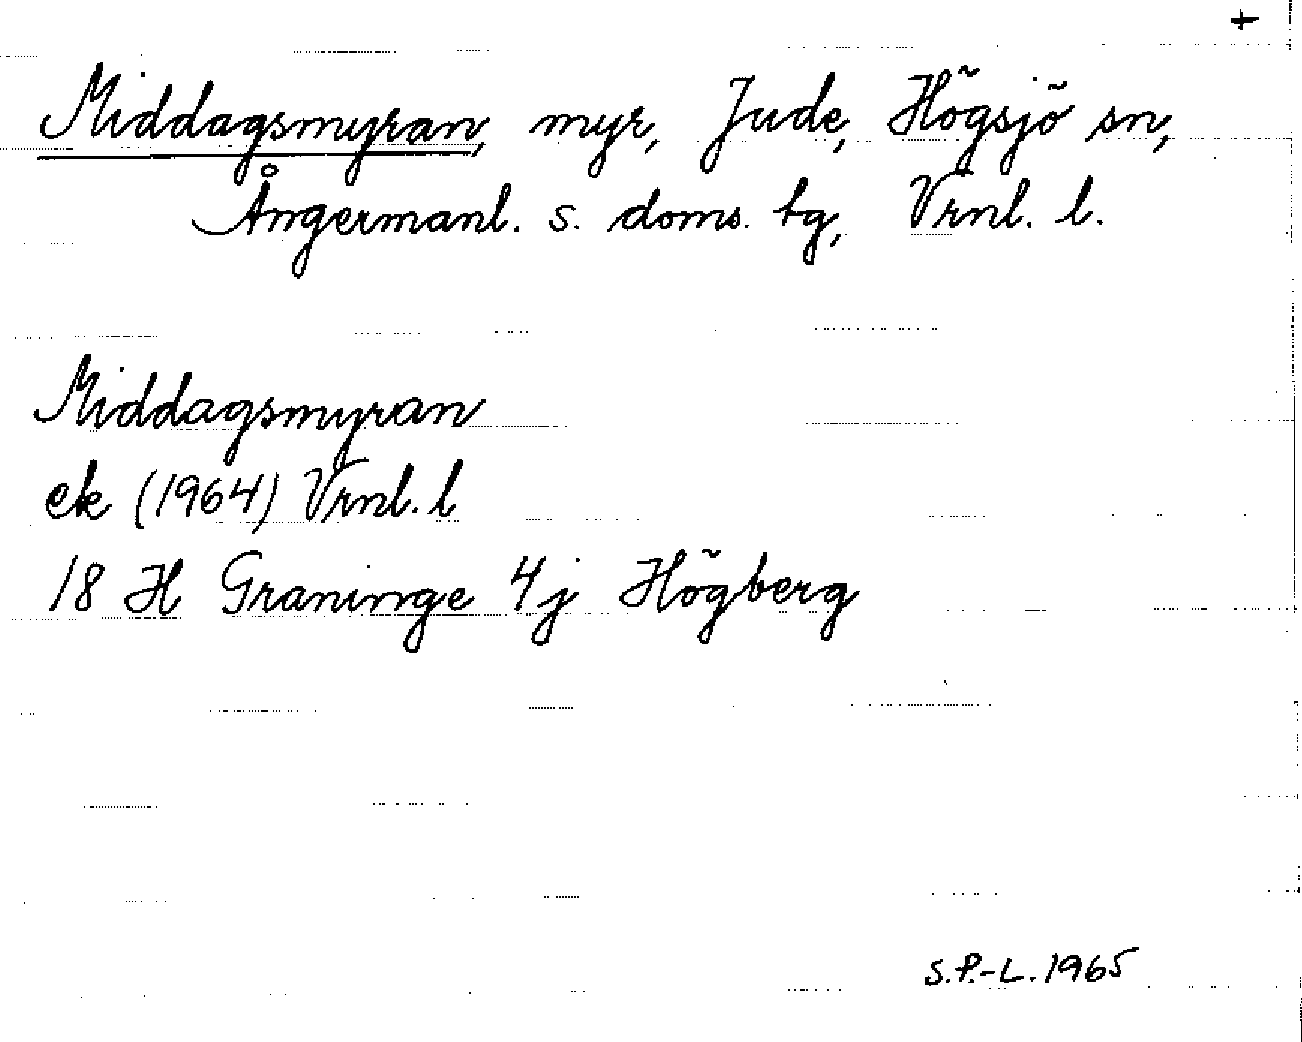 +
Middagsmyran, myr, Jude, Högsjö sn,
Ångermanl. s. doms. tg, Vrnl. l.
Middagsmyran
ek (1964) Vrnl. l
18 H Graninge 4j Högberg
S.P.-L. 1965